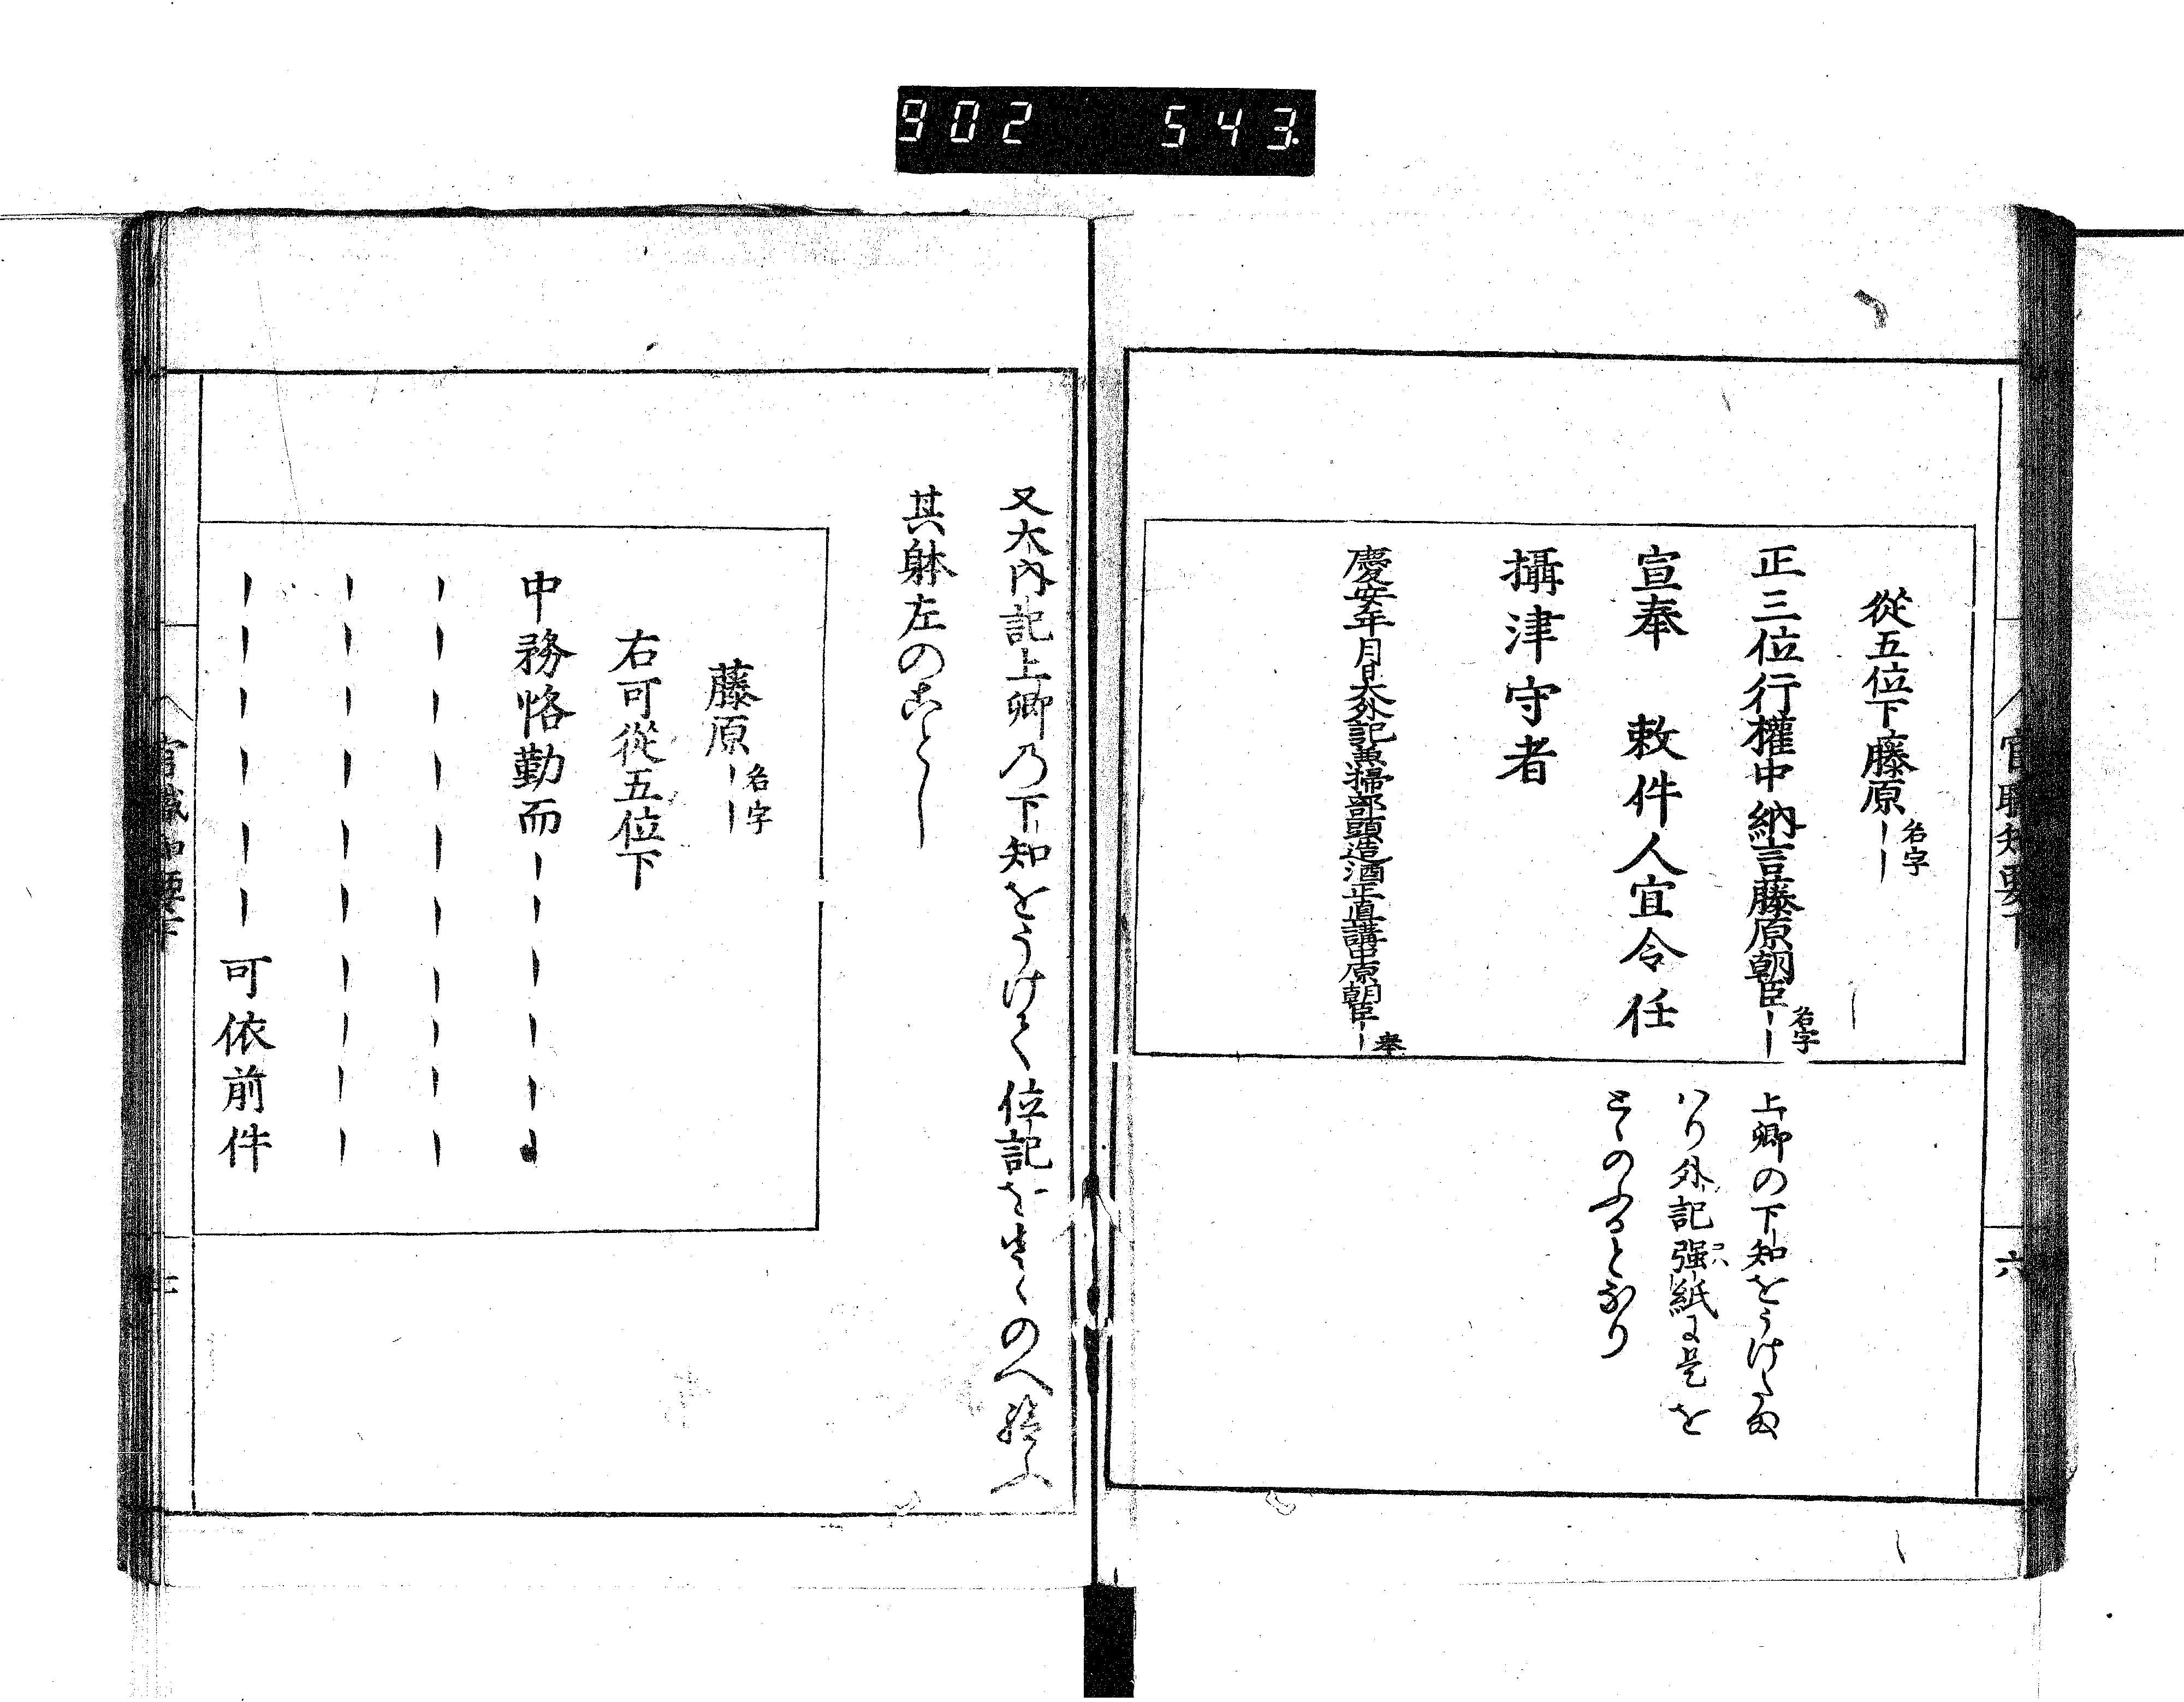 902 543.
官職知要下
六
從五位下藤原ーー名字
正三位行權中納言藤原朝臣ーー名字
宣奉 敕件人宜令任
攝津守者
慶安年月日大外記兼掃部頭造酒正直講中原朝臣ーー奉
上卿の下知をうけ
外記强紙に是を
又大内記上卿乃下知をうけて位記を
其躰左のことし
藤原ーー名字
右可從五位下
中務恪勤而ーーーーーー
ーーーーーーーーーー
ーーーーーーーーーー
ーーーーーー可依前件
官職知要下